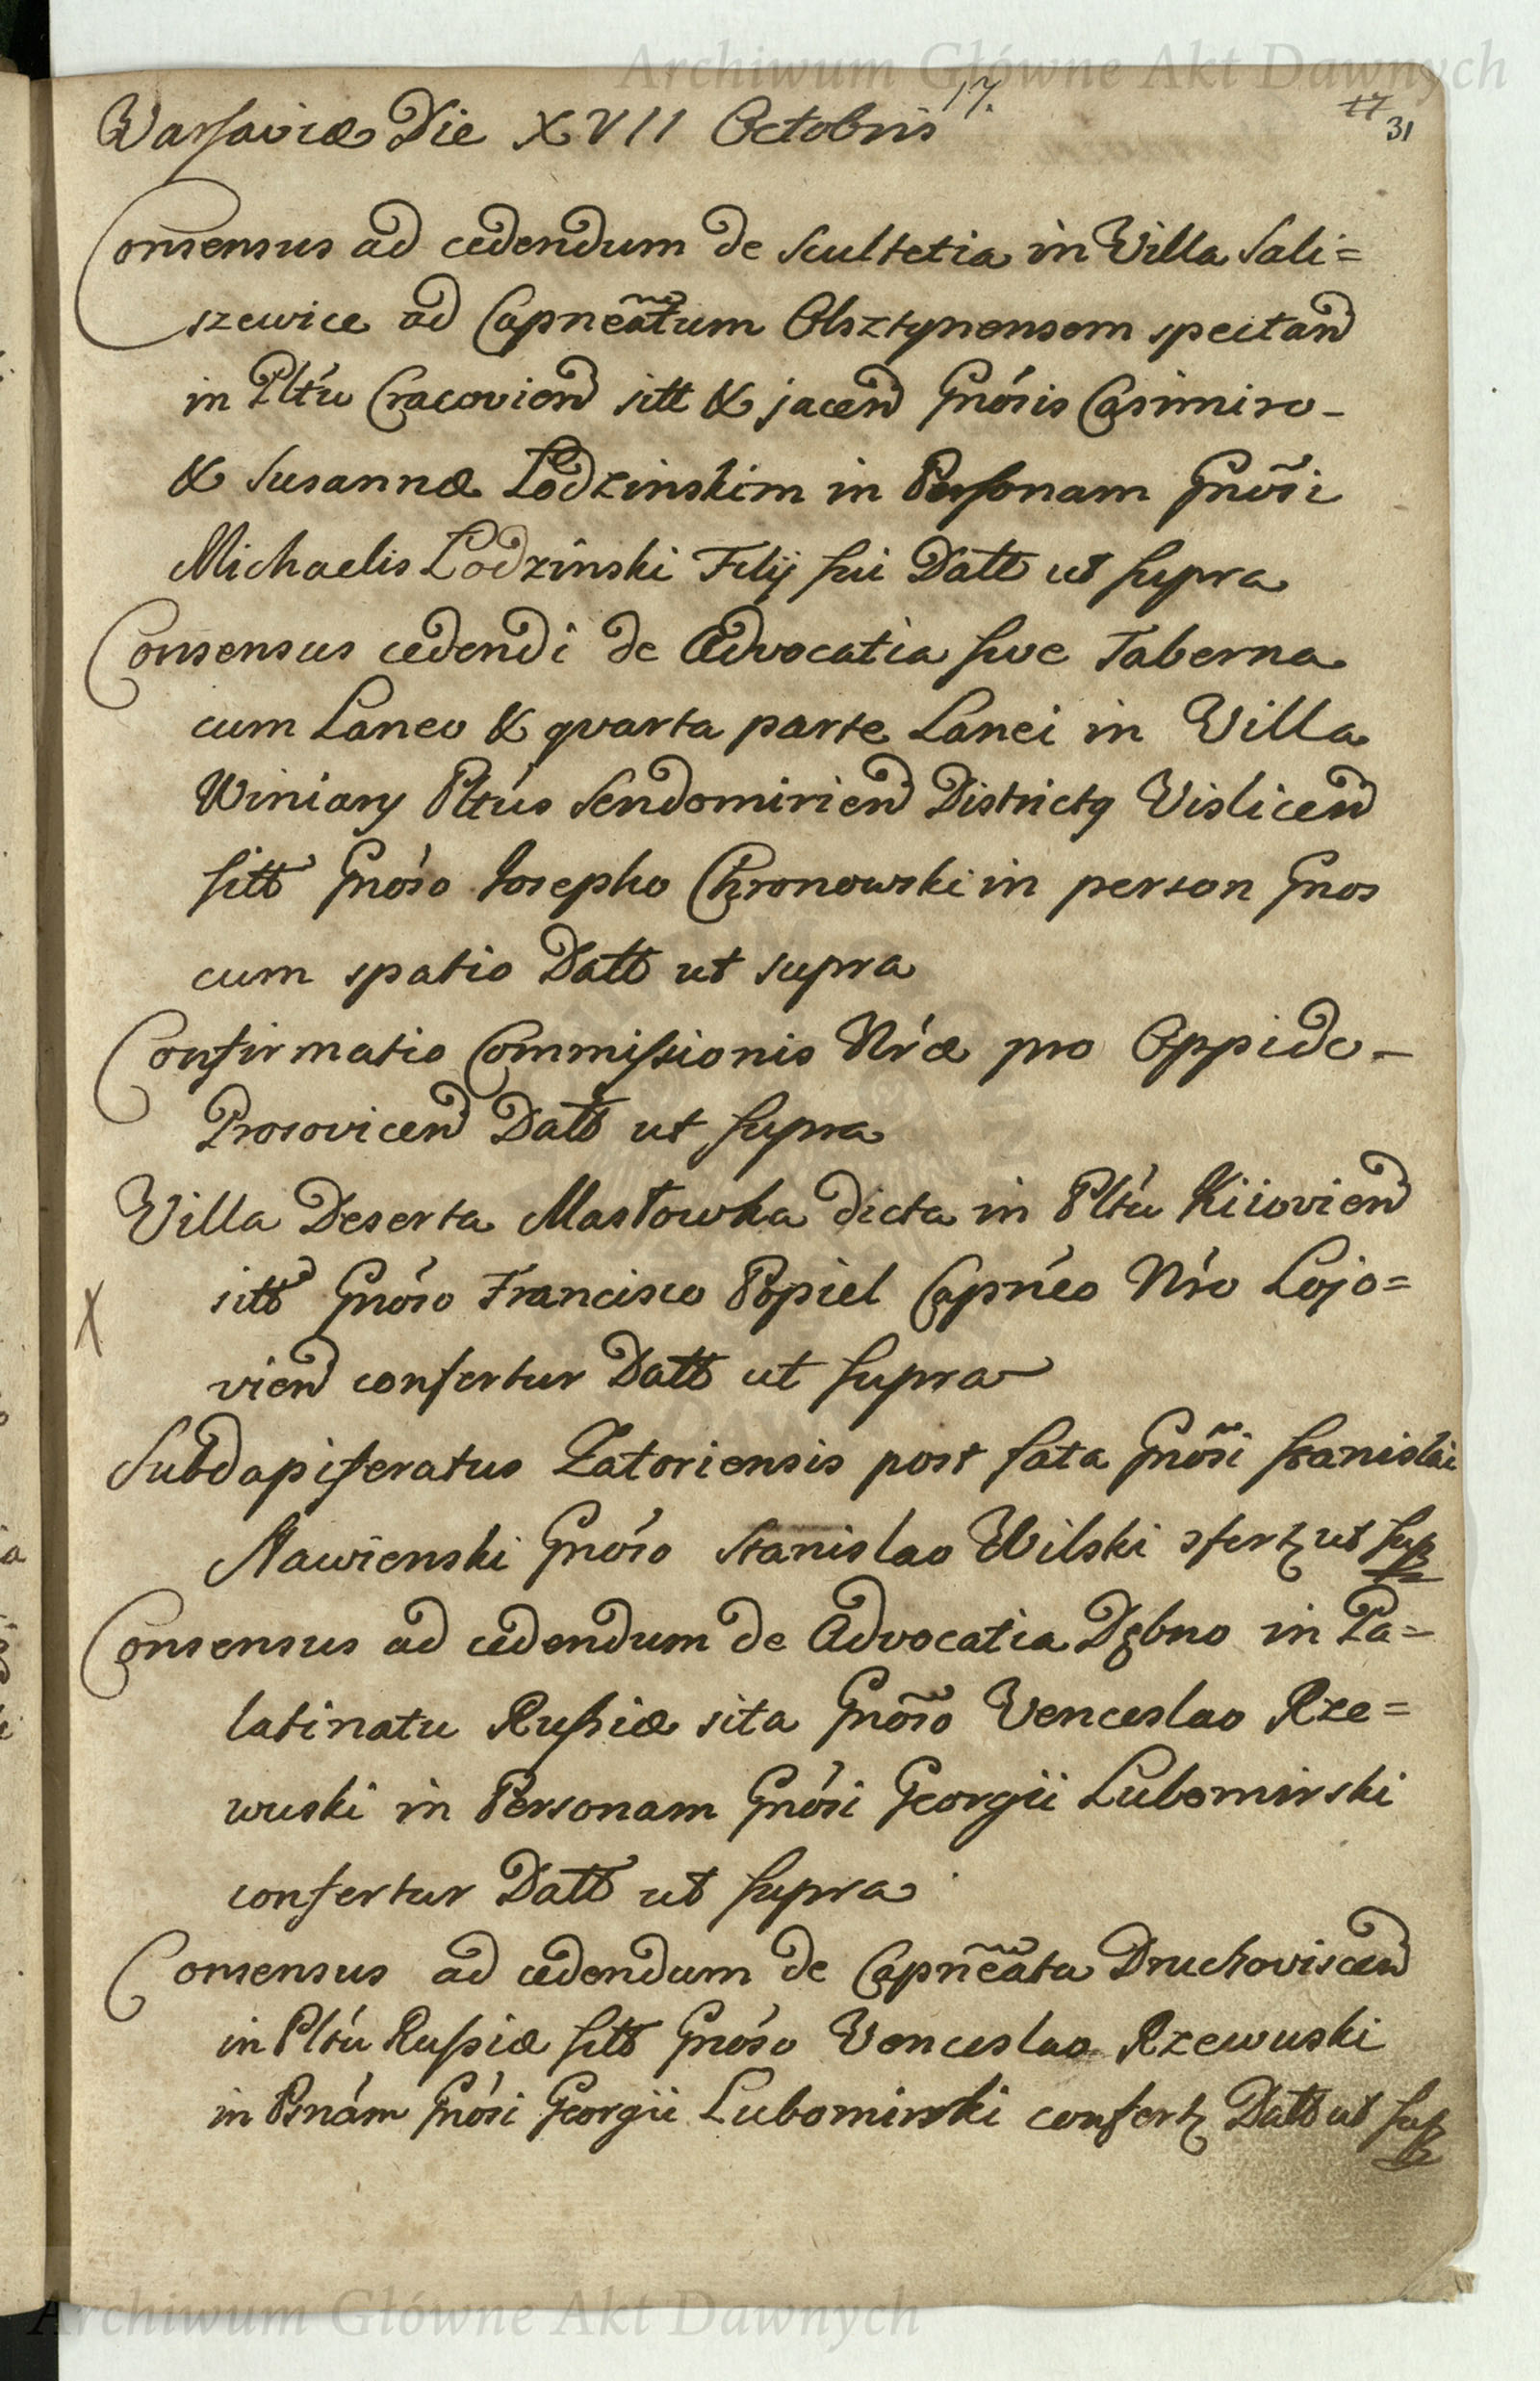 Archiwum Główne Akt Dawnych
17.
17 31
Warsaviæ Die XVII Octobris
Consensus ad cedendum de Scultetia in Villa Sali=
szewice ad Capnẽatum Olsztynensem spectand
in Pltu Cracoviend sitt & jacend Gnosis Casimiro
& Susannæ Łodzinskim in Personam Gnosi
Michaelis Lodzinski Filij sui Datt ut supra
Consensus cedendi de Advocatia sive Taberna
cum Laneo & qvarta parte Lanei in Villa
Winiary Pltus Sendomiriend Districtq Vislicend
sitt Gnoso Josepho Chronowski in person Gnos
cum spatio Datt ut supra
Confirmatio Commissionis Nræ pro Oppido
Prosovicend Datt ut supra
Villa Deserta Masłowka dicta in Pltu Kiioviend
X sitt Gnoso Francisco Popiel Capneo Nro Lojo=
viend confertur Datt ut supra
Subdapiferatus Zatoriensis post fata Gnosi Stanislai
Nawienski Gnoso Stanislao Wilski ut sup
Consensus ad cedendum de Advocatia Dębno in Pa=
latinatu Russiæ sita Gnoso Venceslao Rze=
wuski in Personam Gnosi Georgii Lubomirski
confertur Datt ut supra
Consensus ad cedendum de Capnẽatu Druchoviscend
in Pltu Russiæ sitt Gnoso Venceslao Rzewuski
in Psnam Gnosi Georgii Lubomirski confert Datt ut sup
Archiwum Główne Akt Dawnych